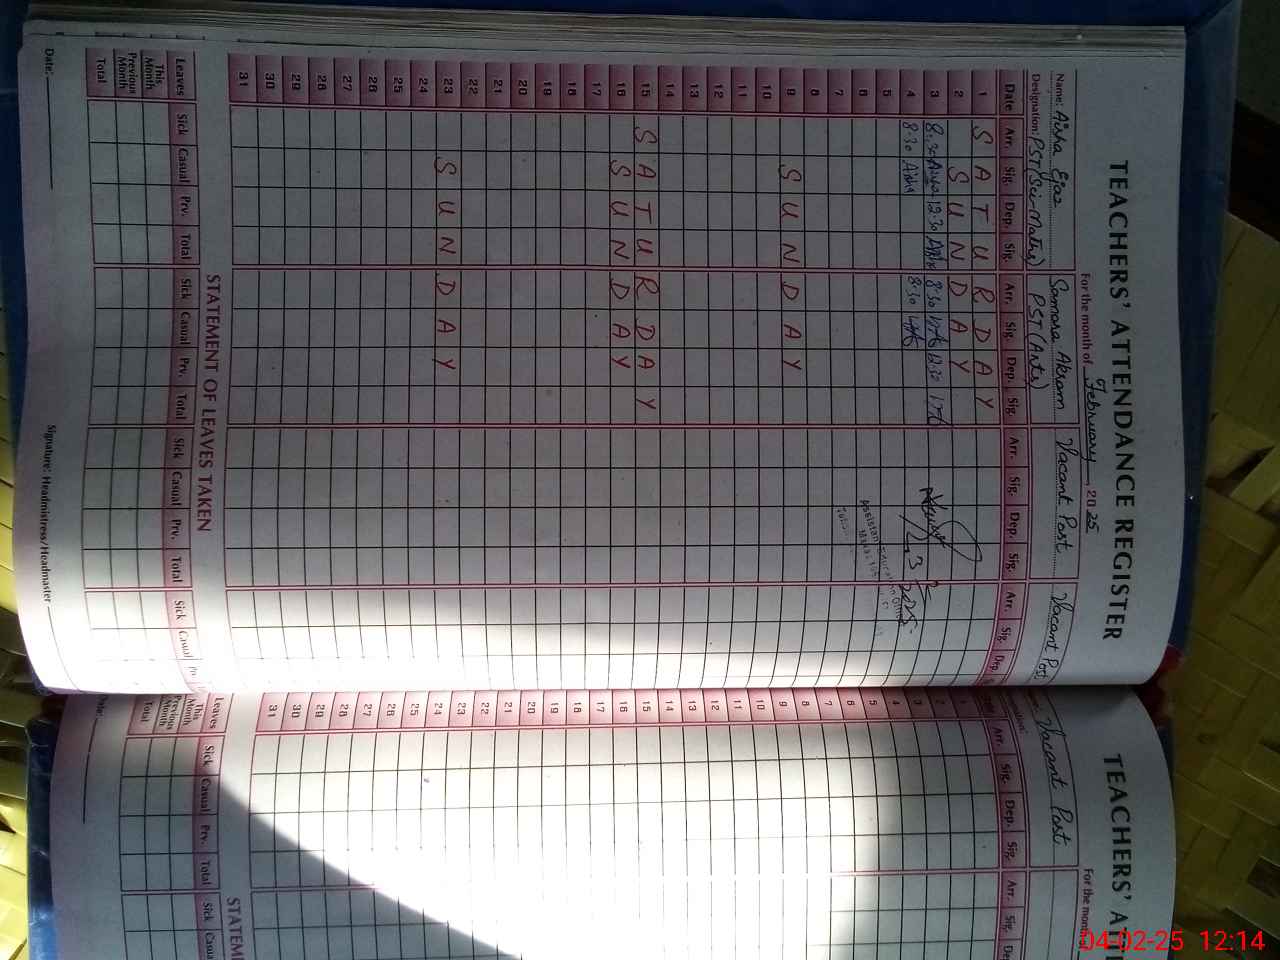 TEACHERS' ATTENDANCE REGISTER
For the month of February 2025
Name: Aisha Ejaz Samara Akram Vacant Post Vacant Post
Designation: PST(Sci-Maths) PST(Arts)
Date Arr. Sig. Dep. Sig. Arr. Sig. Dep. Sig. Arr. Sig. Dep. Sig. Arr. Sig. Dep.
1 SATURDAY
2 SUNDAY
3 8:30 12:30 8:30 12:30
4 8:30 Aisha 8:30
5
6
7
8
9 SUNDAY
10
11
12
13
14
15 SATURDAY
16 SUNDAY
17
18
19
20
21
22
23 SUNDAY
24
25
26
27
28
29
30
31
3 2 2025
Assistant Education Officer
STATEMENT OF LEAVES TAKEN
Leaves Sick Casual Prv. Total Sick Casual Prv. Total Sick Casual Prv. Total Sick Casual
This Month
Previous Month
Total
Date: Signature: Headmistress/Headmaster
TEACHERS' ATTE
For the month
Vacant Post
Arr. Sig. Dep. Sig. Arr. Sig. De
1
2
3
4
5
6
7
8
9
10
11
12
13
14
15
16
17
18
19
20
21
22
23
24
25
26
27
28
29
30
31
STATEME
Leaves Sick Casual Prv. Total Sick Casua
This Month
Previous Month
Total
04-02-25 12:14